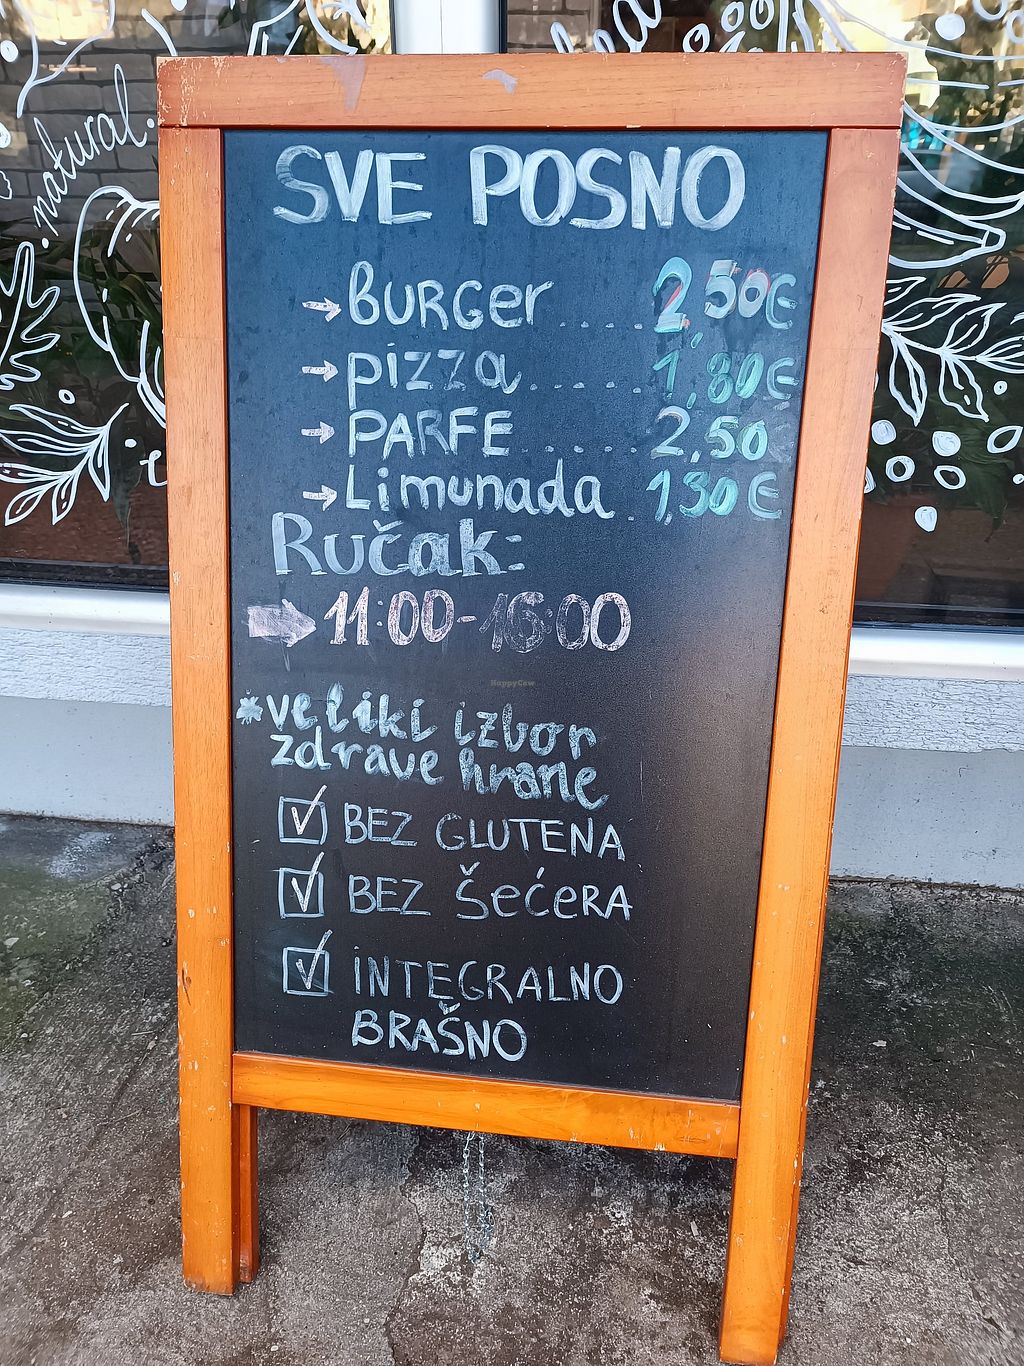 natural.
SVE POSNO
→ BURGer ..... 2,50€
→ pizza ...... 1,80€
→ PARFE ...... 2,50
→ Limunada . 1,50€
Ručak:
→ 11:00-16:00
*veliki izbor
zdrave hrane
☑ BEZ GLUTENA
☑ BEZ ŠećeRA
☑ INTEGRALNO
BRAŠNO
HappyCow